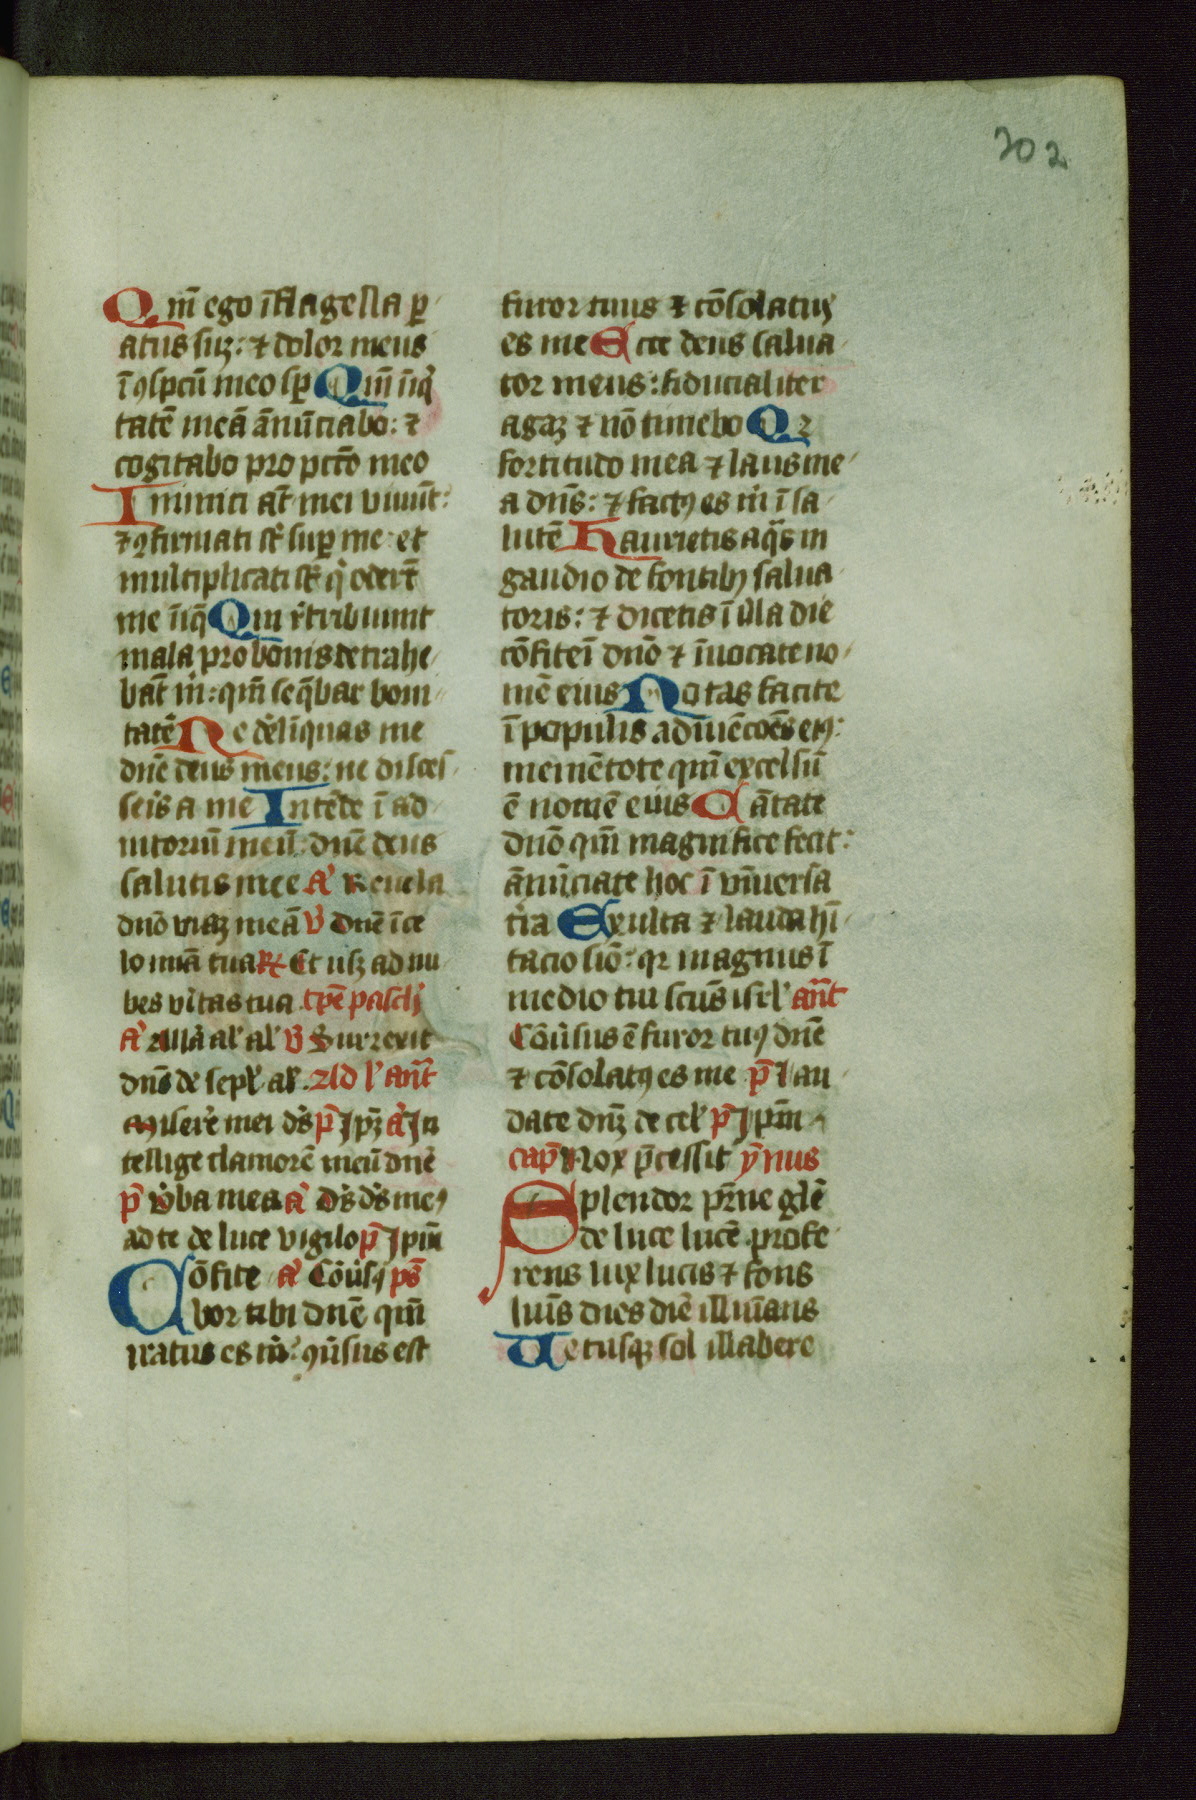 202
Qm̄ ego ī flagella p̲
atus suꝫ: ⁊ dolor meus
ī ꝯspcū meo sp̲ Qm̄ īiq̇
tatē meā ānūciabo: ⁊
cogitabo pro pctō meo
Inimici at̄ mei vivūt:
⁊ ꝯfirmati st̄ sup̲ me et
multiplicati st̄ q̇ odert̄
me īiq̄ Qui rt̄ribuunt
mala pro bonis detrahe
bāt ṁ: qm̄ seq̄bar boni
tatē Ne delīquas me
dnē deus meus: ne disces
seis a me Intēde ī ad
iutoriū meū: dnē deus
salutis mee A᷑ Revela
dnō viaꝫ meā V̄ Dnē ī ce
lo mīa tua R Et usꝫ ad nu
bes vītas tua tp̄e pasch
A᷑ Allā al' al' V̄ Surrexit
dns̄ de sepl' al'. Ad l' ant̄
Miserē mei ds̄ p̄ Ipꝫ A᷑ In
tellige clamorē meū dnē
p̄ Vba mea A᷑ Ds̄ ds̄ meꝰ
ad te de luce vigilo p̄ Ipm̄
Cōfite A᷑ Cōūsꝰ ps̄
bor tibi dnē qm̄
iratus es ṁ: ꝯūsus est
furor tuus ⁊ cōsolatus
es me Ecce deus salva
tor meus: fiducialiter
agaꝫ ⁊ nō timebo Qꝛ
fortitudo mea ⁊ laus me
a dns̄: ⁊ factꝰ es ṁ ī sa
lutē Haurietis aq̄s in
gaudio de fontibꝫ salva
toris: ⁊ dicetis ī illa die
cōfiteī dnō ⁊ īvocate no
mē eius Notas facite
ī populis adīuēcōes eiꝰ:
memētote qm̄ excelsū
ē nomē eius Cātate
dnō qm̄ magnifice fecit:
ānūciate hoc ī vniversa
tr̄a Exulta ⁊ lauda hī
tacio siō: qꝛ magnus ī
medio tui scūs isrl' ant̄
Cōūsus ē furor tuꝰ dnē
⁊ cōsolatꝰ es me p̄ Lau
date dnꝫ de cel' p̄ Ipm̄
cap̄ Nox p̄cessit ym̄nus
Splendor pr̄ne glē
de luce lucē profe
rens lux lucis ⁊ fons
lumīs dies diē illumīans
Verusqꝫ sol illabere